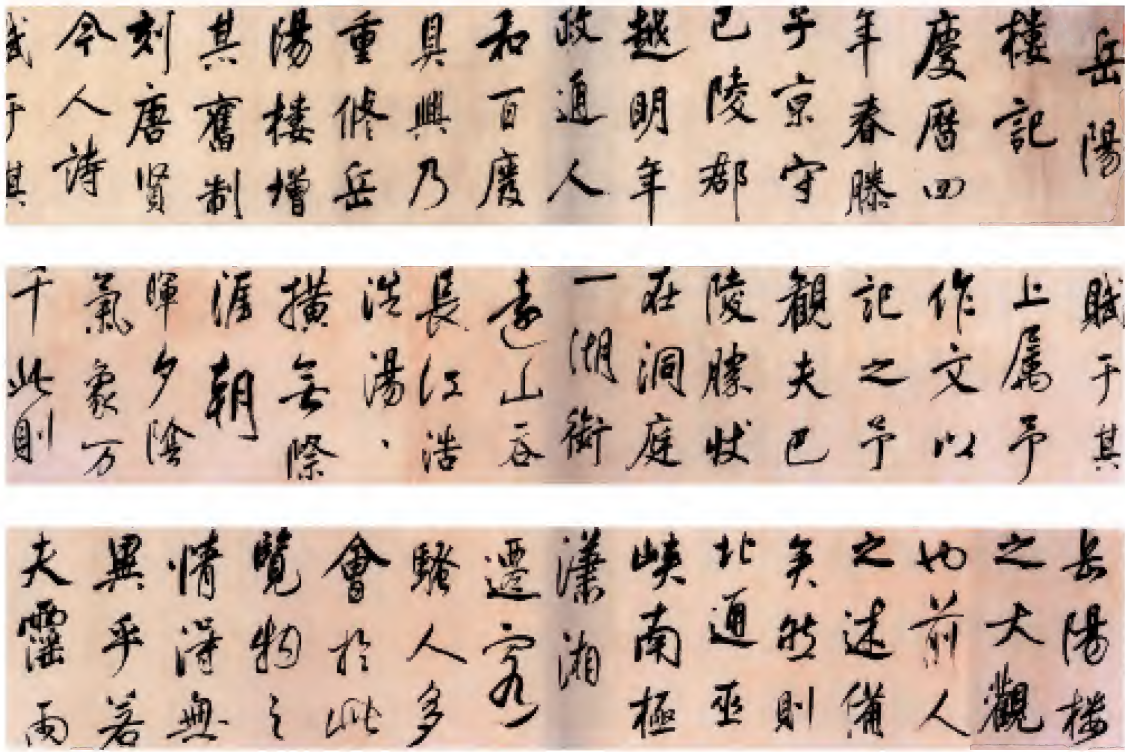 岳陽
樓記
慶曆四
年春滕
子京守
巴陵郡
越明年
政通人
和百廢
具興乃
重脩岳
陽樓增
其舊制
刻唐賢
今人詩
賦于其
賦于其
上属予
作文以
記之予
觀夫巴
陵勝狀
在洞庭
一湖銜
遠山吞
長江浩
浩湯、
橫無際
涯朝
暉夕陰
氣象万
千此則
岳陽樓
之大觀
也前人
之述備
矣然則
北通巫
峽南極
瀟湘
遷客
騷人多
會於此
覽物之
情得無
異乎若
夫霪雨